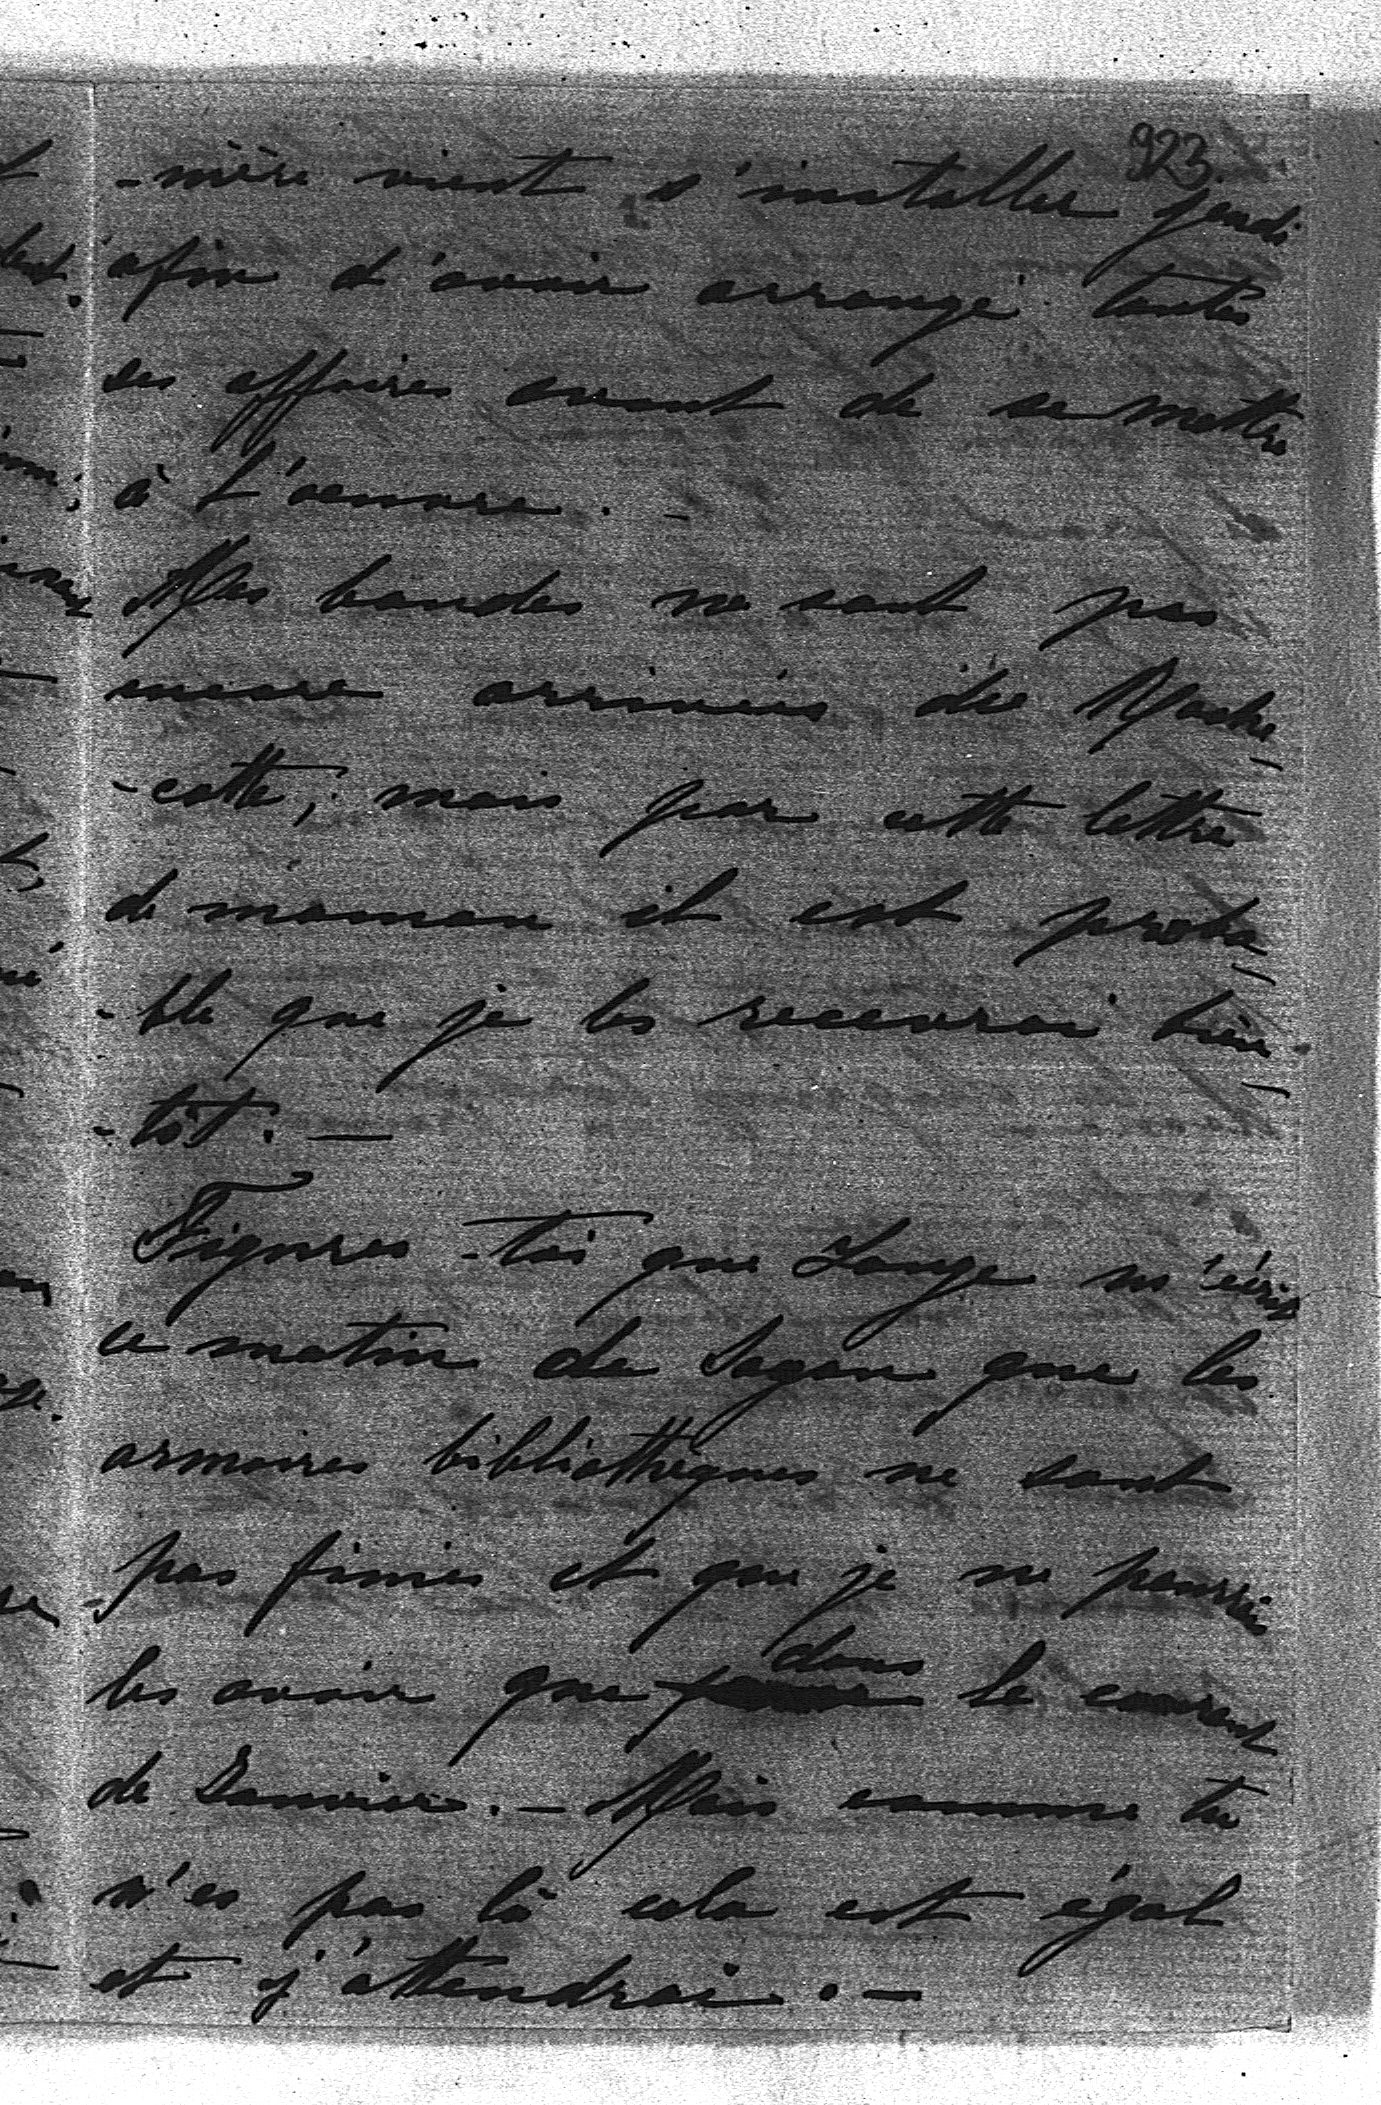 923.
-mère vient s'installer jeudi
afin d'avoir arrangé toutes
ses affaires avant de se mettre
à l'oeuvre. -
Mes bandes ne sont pas
encore arrivées de
-cette; mais par cette lettre
de maman il est proba-
-ble que je les recevrai bien-
-tôt. —
Figures-toi que Lange m'écrit
ce matin de Sagan que les
armoires bibliothèques ne sont
pas finies et que je ne pourrai
les avoir que dans le courant
de Janvier. - Mais comme tu
n'es pas là cela est égal
et j'attendrai. -